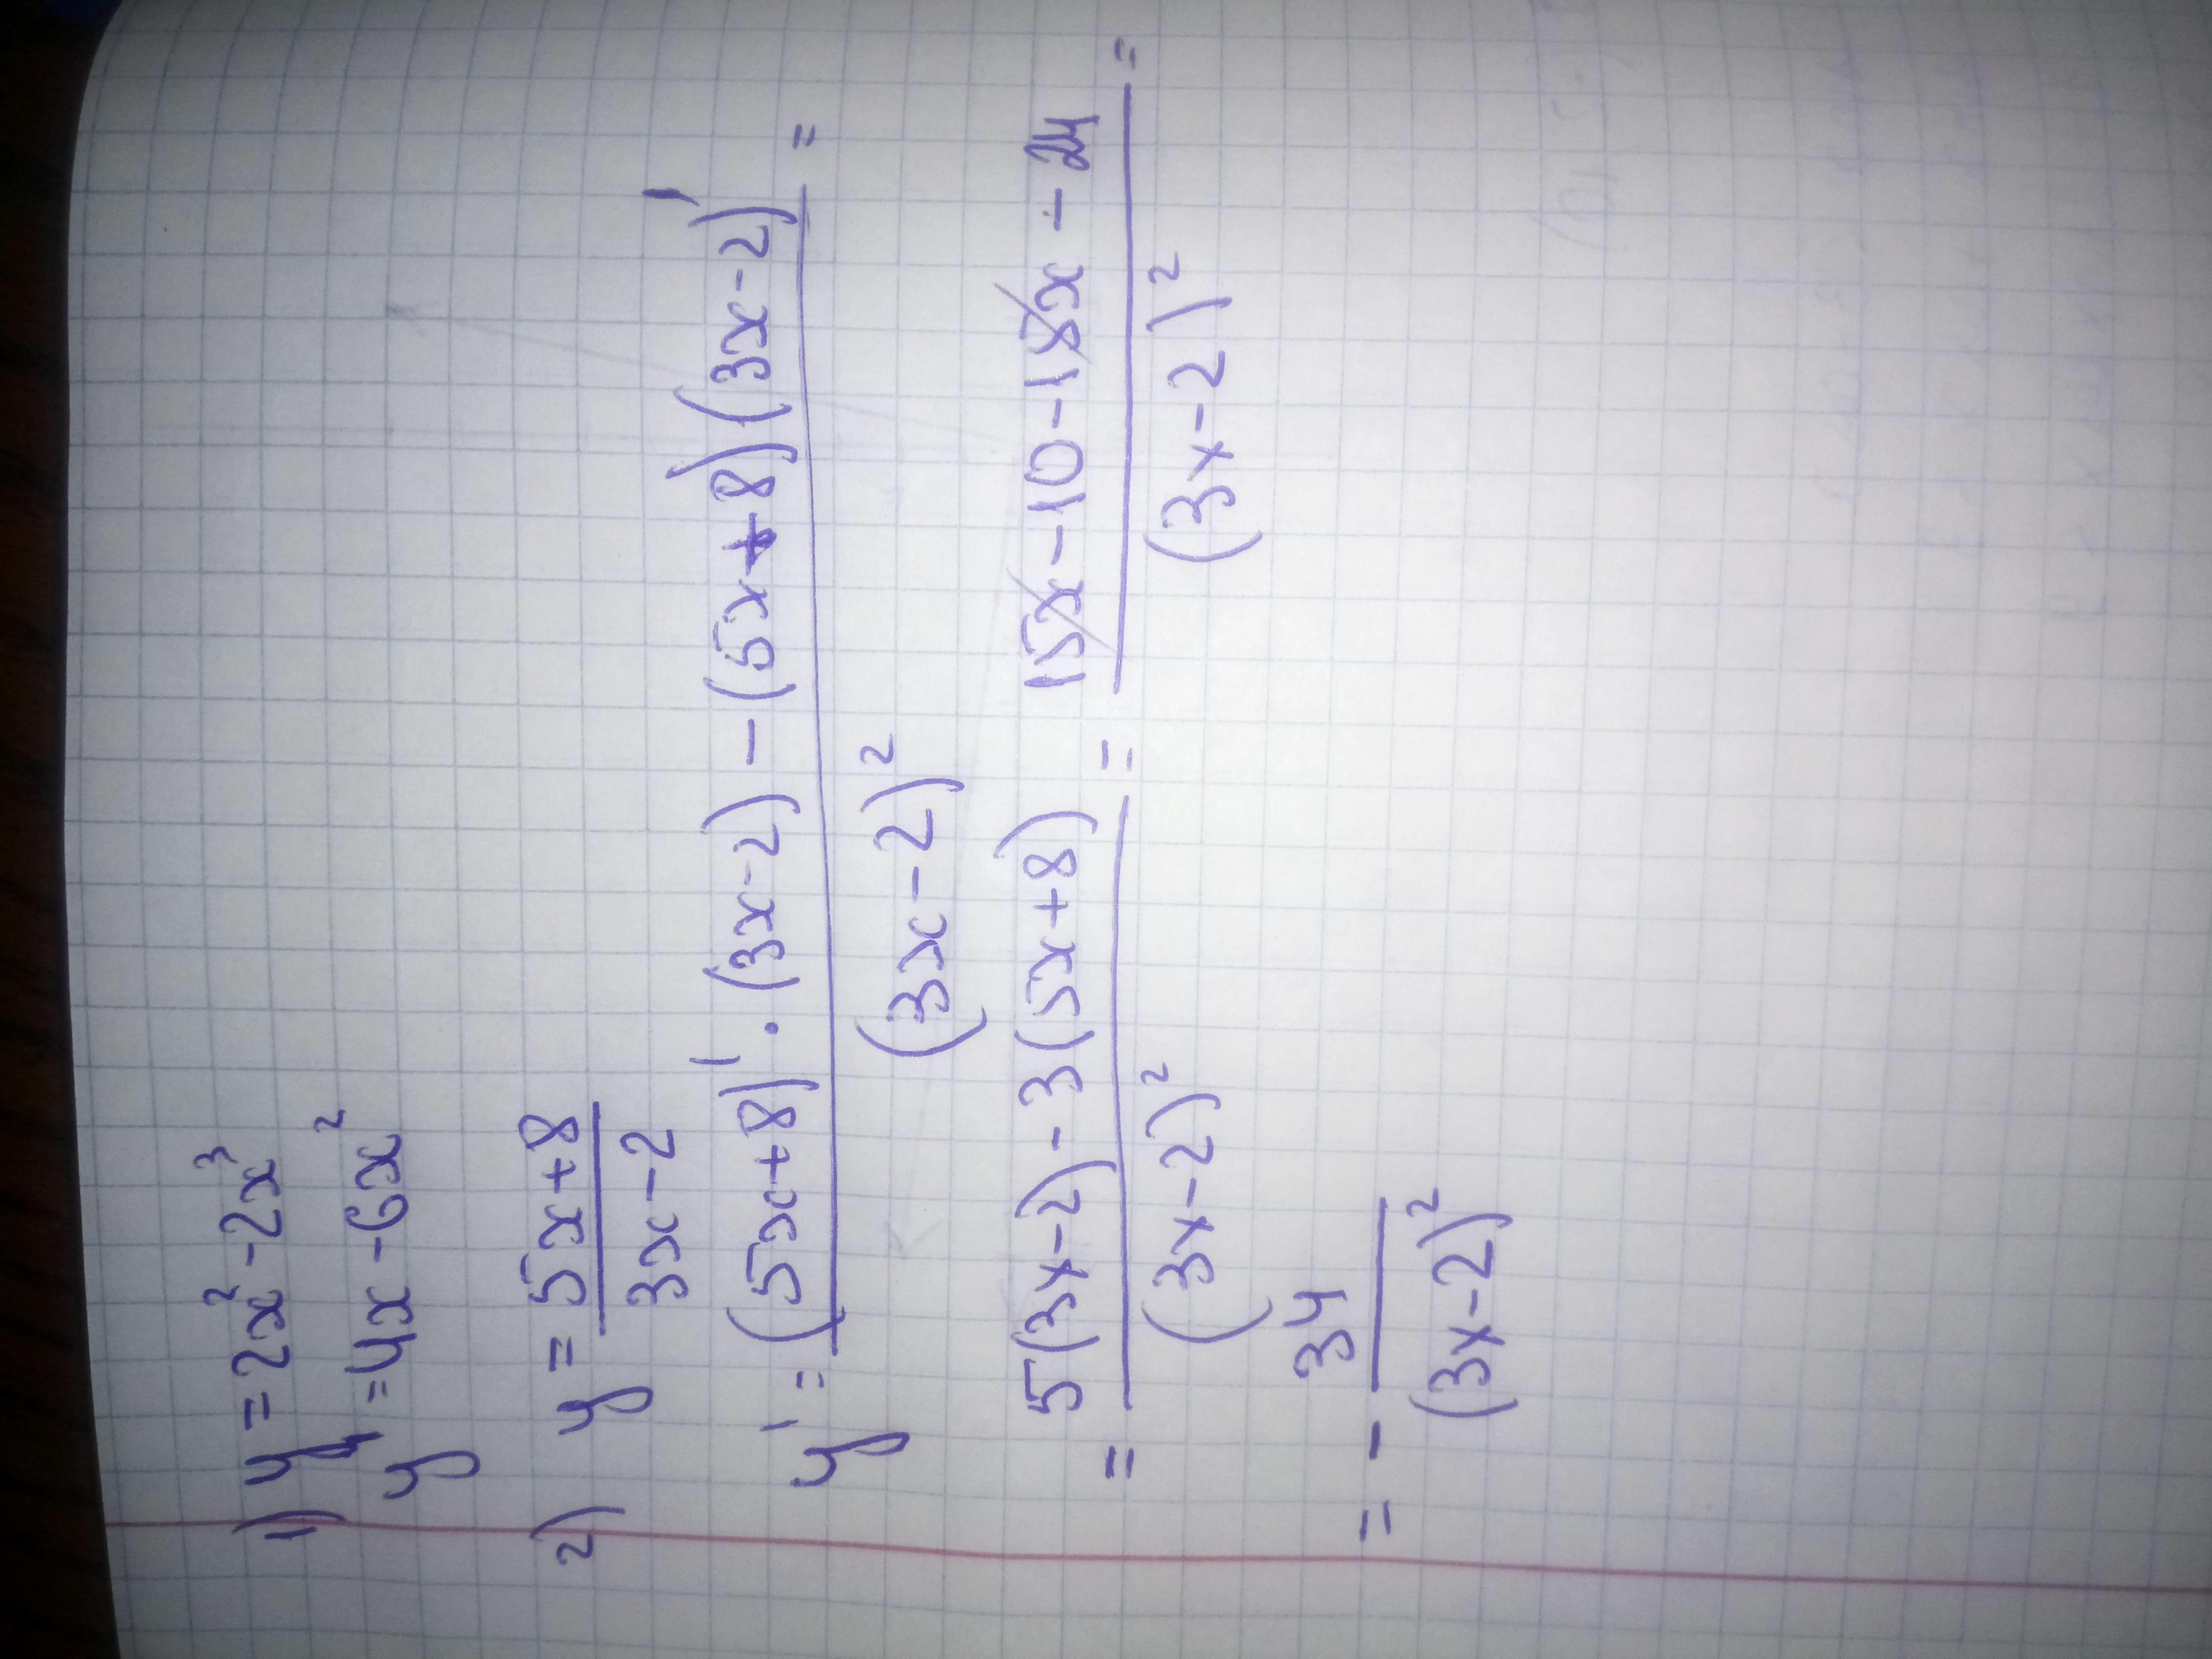 1) y = 2x² - 2x³
y' = 4x - 6x²
2) y = 5x+8 / 3x-2
y' = (5x+8)' · (3x-2) - (5x+8)(3x-2)' / (3x-2)² =
= 5(3x-2) - 3(5x+8) / (3x-2)² = 15x - 10 - 15x - 24 / (3x-2)² =
= - 34 / (3x-2)²